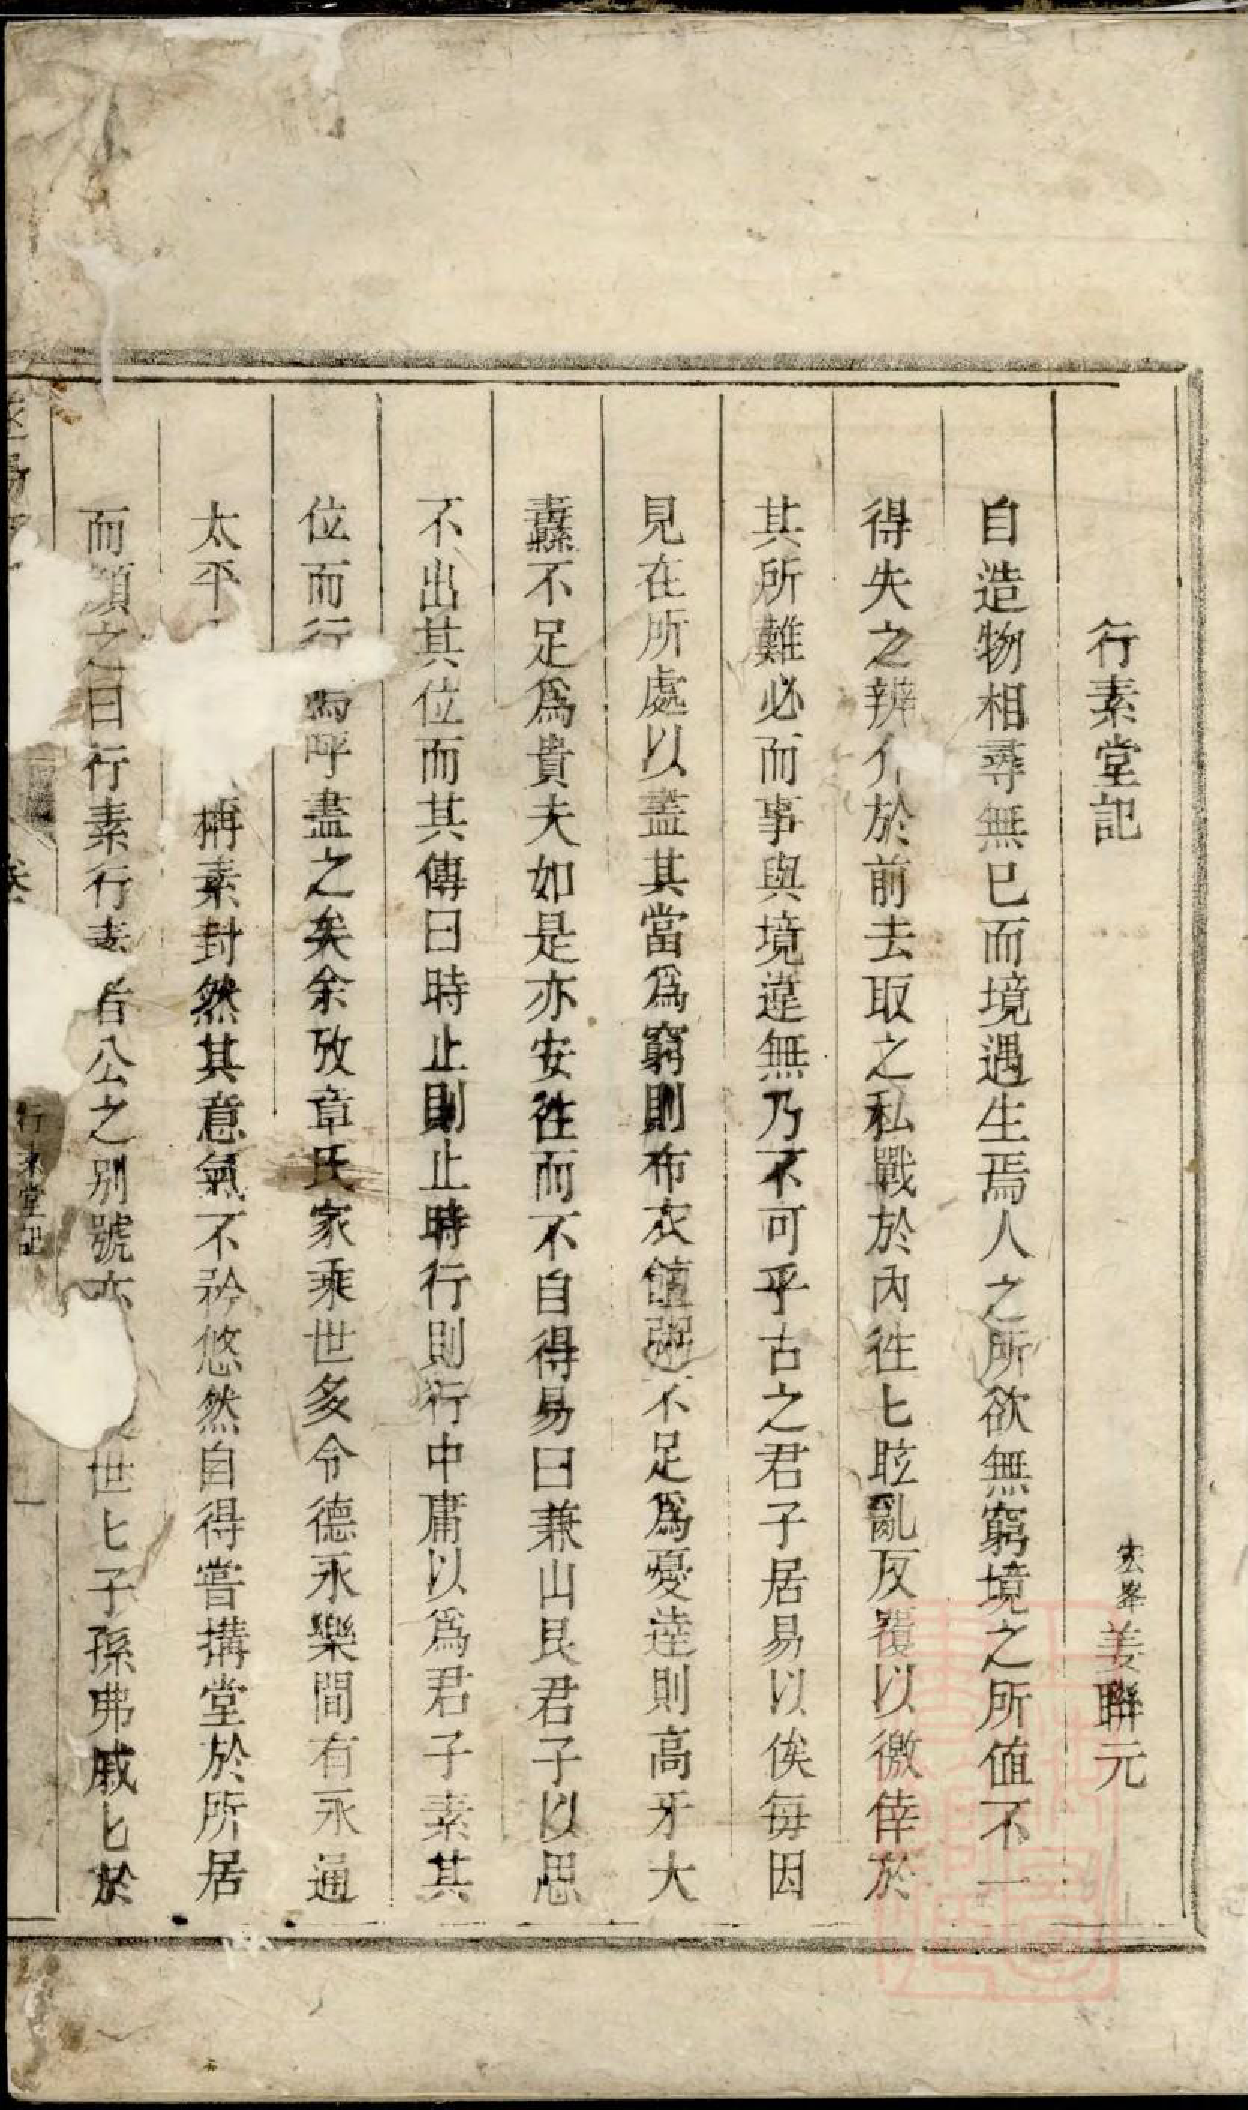 行素堂記
宏峯 姜聯元
自造物相尋無已而境遇生焉人之所欲無窮境之所值不一
得失之辨介於前去取之私戰於內徃匕眩亂反覆以徼倖於
其所難必而事與境違無乃不可乎古之君子居易以俟每因
見在所處以盖其當爲窮則布衣饘粥不足爲憂逹則高牙大
纛不足爲貴夫如是亦安徃而不自得易曰兼山艮君子以思
不出其位而其傳曰時止則止時行則行中庸以爲君子素其
位而行嗚呼盡之矣余攷章氏家乘世多令德永樂間有永通
太平 稱素封然其意氣不矜悠然自得嘗搆堂於所居
而顔之曰行素行素者公之别號亦 世匕子孫弗戚匕於
行素堂記
一